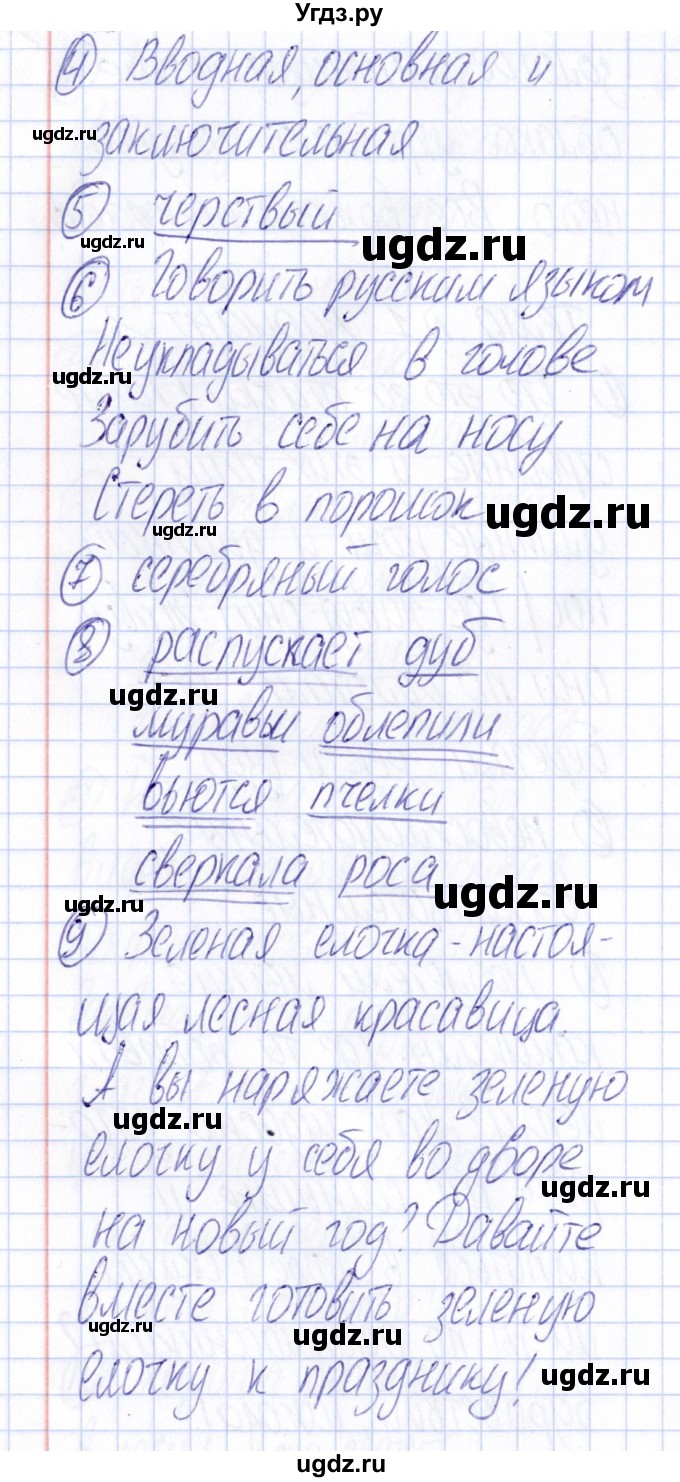 Угдз.ру
④ Вводная, основная и
ugdz.ru
заключительная
⑤ черствый
ugdz.ru
ugdz.ru
⑥ Говорить русским языком
ugdz.ru
Не укладываться в голове
ugdz.ru
Зарубить себе на носу
Стереть в порошок
ugdz.ru
ugdz.ru
⑦ серебряный голос
⑧ распускает дуб
ugdz.ru
муравьи облепили
вьются пчелки
сверкала роса
ugdz.ru
ugdz.ru
⑨ Зеленая елочка - настоя-
щая лесная красавица.
А вы наряжаете зеленую
ugdz.ru
елочку у себя во дворе
ugdz.ru
на новый год? Давайте
вместе готовить зеленую
ugdz.ru
ugdz.ru
елочку к празднику!
ugdz.ru
ugdz.ru